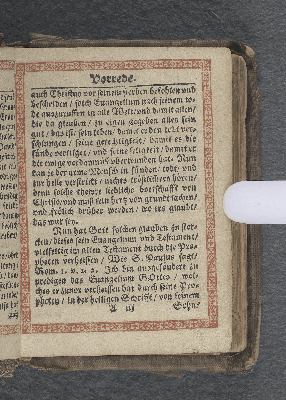 Vorrede.
auch Christus vor seinem sterben befohlen und
bescheiden / solch Evangelium nach seinem to-
de auszuruffen in alle Welt / und damit allen /
die da glauben / zu eigen gegeben allen sein
gut / das ist / sein leben / damit er den todt ver-
schlungen / seine gerechtigkeit / damit er die
sünde vertilget / und seine seligkeit / damit er
die ewige verdamnis überwunden hat. Nun
kan je der arme Mensch in sünden / todt / und
zur helle verstrickt / nichts tröstlichers hören /
denn solche theure liebliche botschafft von
Christo / und muß sein hertz von grund lachen /
und frölich drüber werden / wo ers glaubt /
das war sey.
Nun hat Gott solchen glauben zu stär-
cken / dieses sein Evangelium und Testament /
vielfeltig im alten Testament durch die Pro-
pheten verheissen / Wie S. Paulus sagt /
Rom. 1. v. 1. 2. Ich bin ausgesondert zu
predigen das Evangelium GOttes / wel-
ches er zuvor verheissen hat durch seine Pro-
pheten / in der heiligen Schrifft / von seinem
A iij Sohn /